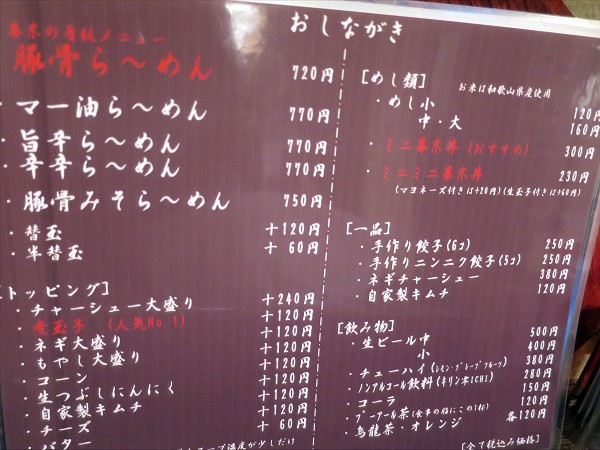 おしながき
幕末の看板メニュー
豚骨ら～めん 720円
・マー油ら～めん 770円
・旨辛ら～めん 770円
・辛辛ら～めん 770円
・豚骨みそら～めん 750円
・替玉 +120円
・半替玉 +60円
[トッピング]
・チャーシュー大盛り +240円
・煮玉子 (人気No.1) +120円
・ネギ大盛り +120円
・もやし大盛り +120円
・コーン +120円
・生つぶしにんにく +120円
・自家製キムチ +120円
・チーズ +60円
・バター
スープ温度が少しだけ
[めし類] お米は和歌山県産使用
・めし小 120円
中・大 160円
・ミニ幕末丼 (おすすめ) 300円
・ミニミニ幕末丼 230円
(マヨネーズ付きは+20円)(生玉子付きは+60円)
[一品]
・手作り餃子(6コ) 250円
・手作りニンニク餃子(5コ) 250円
・ネギチャーシュー 380円
・自家製キムチ 120円
[飲み物]
・生ビール中 500円
小 400円
・チューハイ(レモン・グレープフルーツ) 380円
・ノンアルコール飲料(キリン零ICHI) 280円
・コーラ 150円
・プーアール茶(食事の脂にこの1杯)
・烏龍茶・オレンジ 各120円
[全て税込み価格]